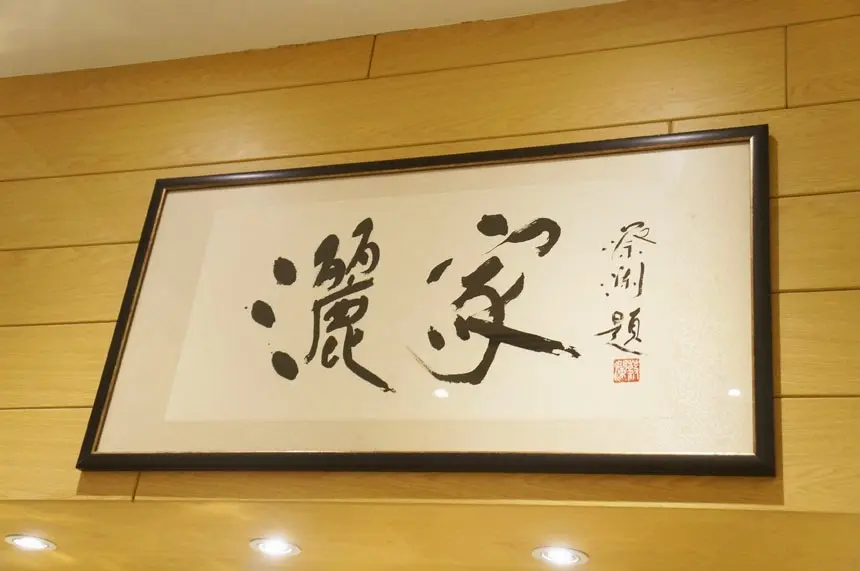 灑家
蔡瀾題